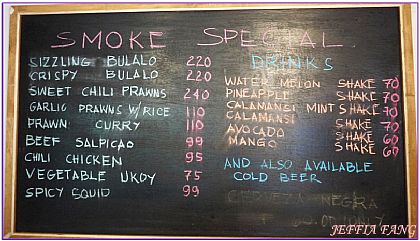 SMOKE SPECIAL
SIZZLING BULALO 220
CRISPY BULALO 220
SWEET CHILI PRAWNS 240
GARLIC PRAWNS W/ RICE 110
PRAWN CURRY 110
BEEF SALPICAO 99
CHILI CHICKEN 95
VEGETABLE UKOY 75
SPICY SQUID 99
DRINKS
WATER MELON SHAKE 70
PINEAPPLE SHAKE 70
CALAMANSI MINT SHAKE 70
CALAMANSI SHAKE 70
AVOCADO SHAKE 60
MANGO SHAKE 60
AND ALSO AVAILABLE
COLD BEER
CERVEZA NEGRA
ONLY
JEFFIA FANG